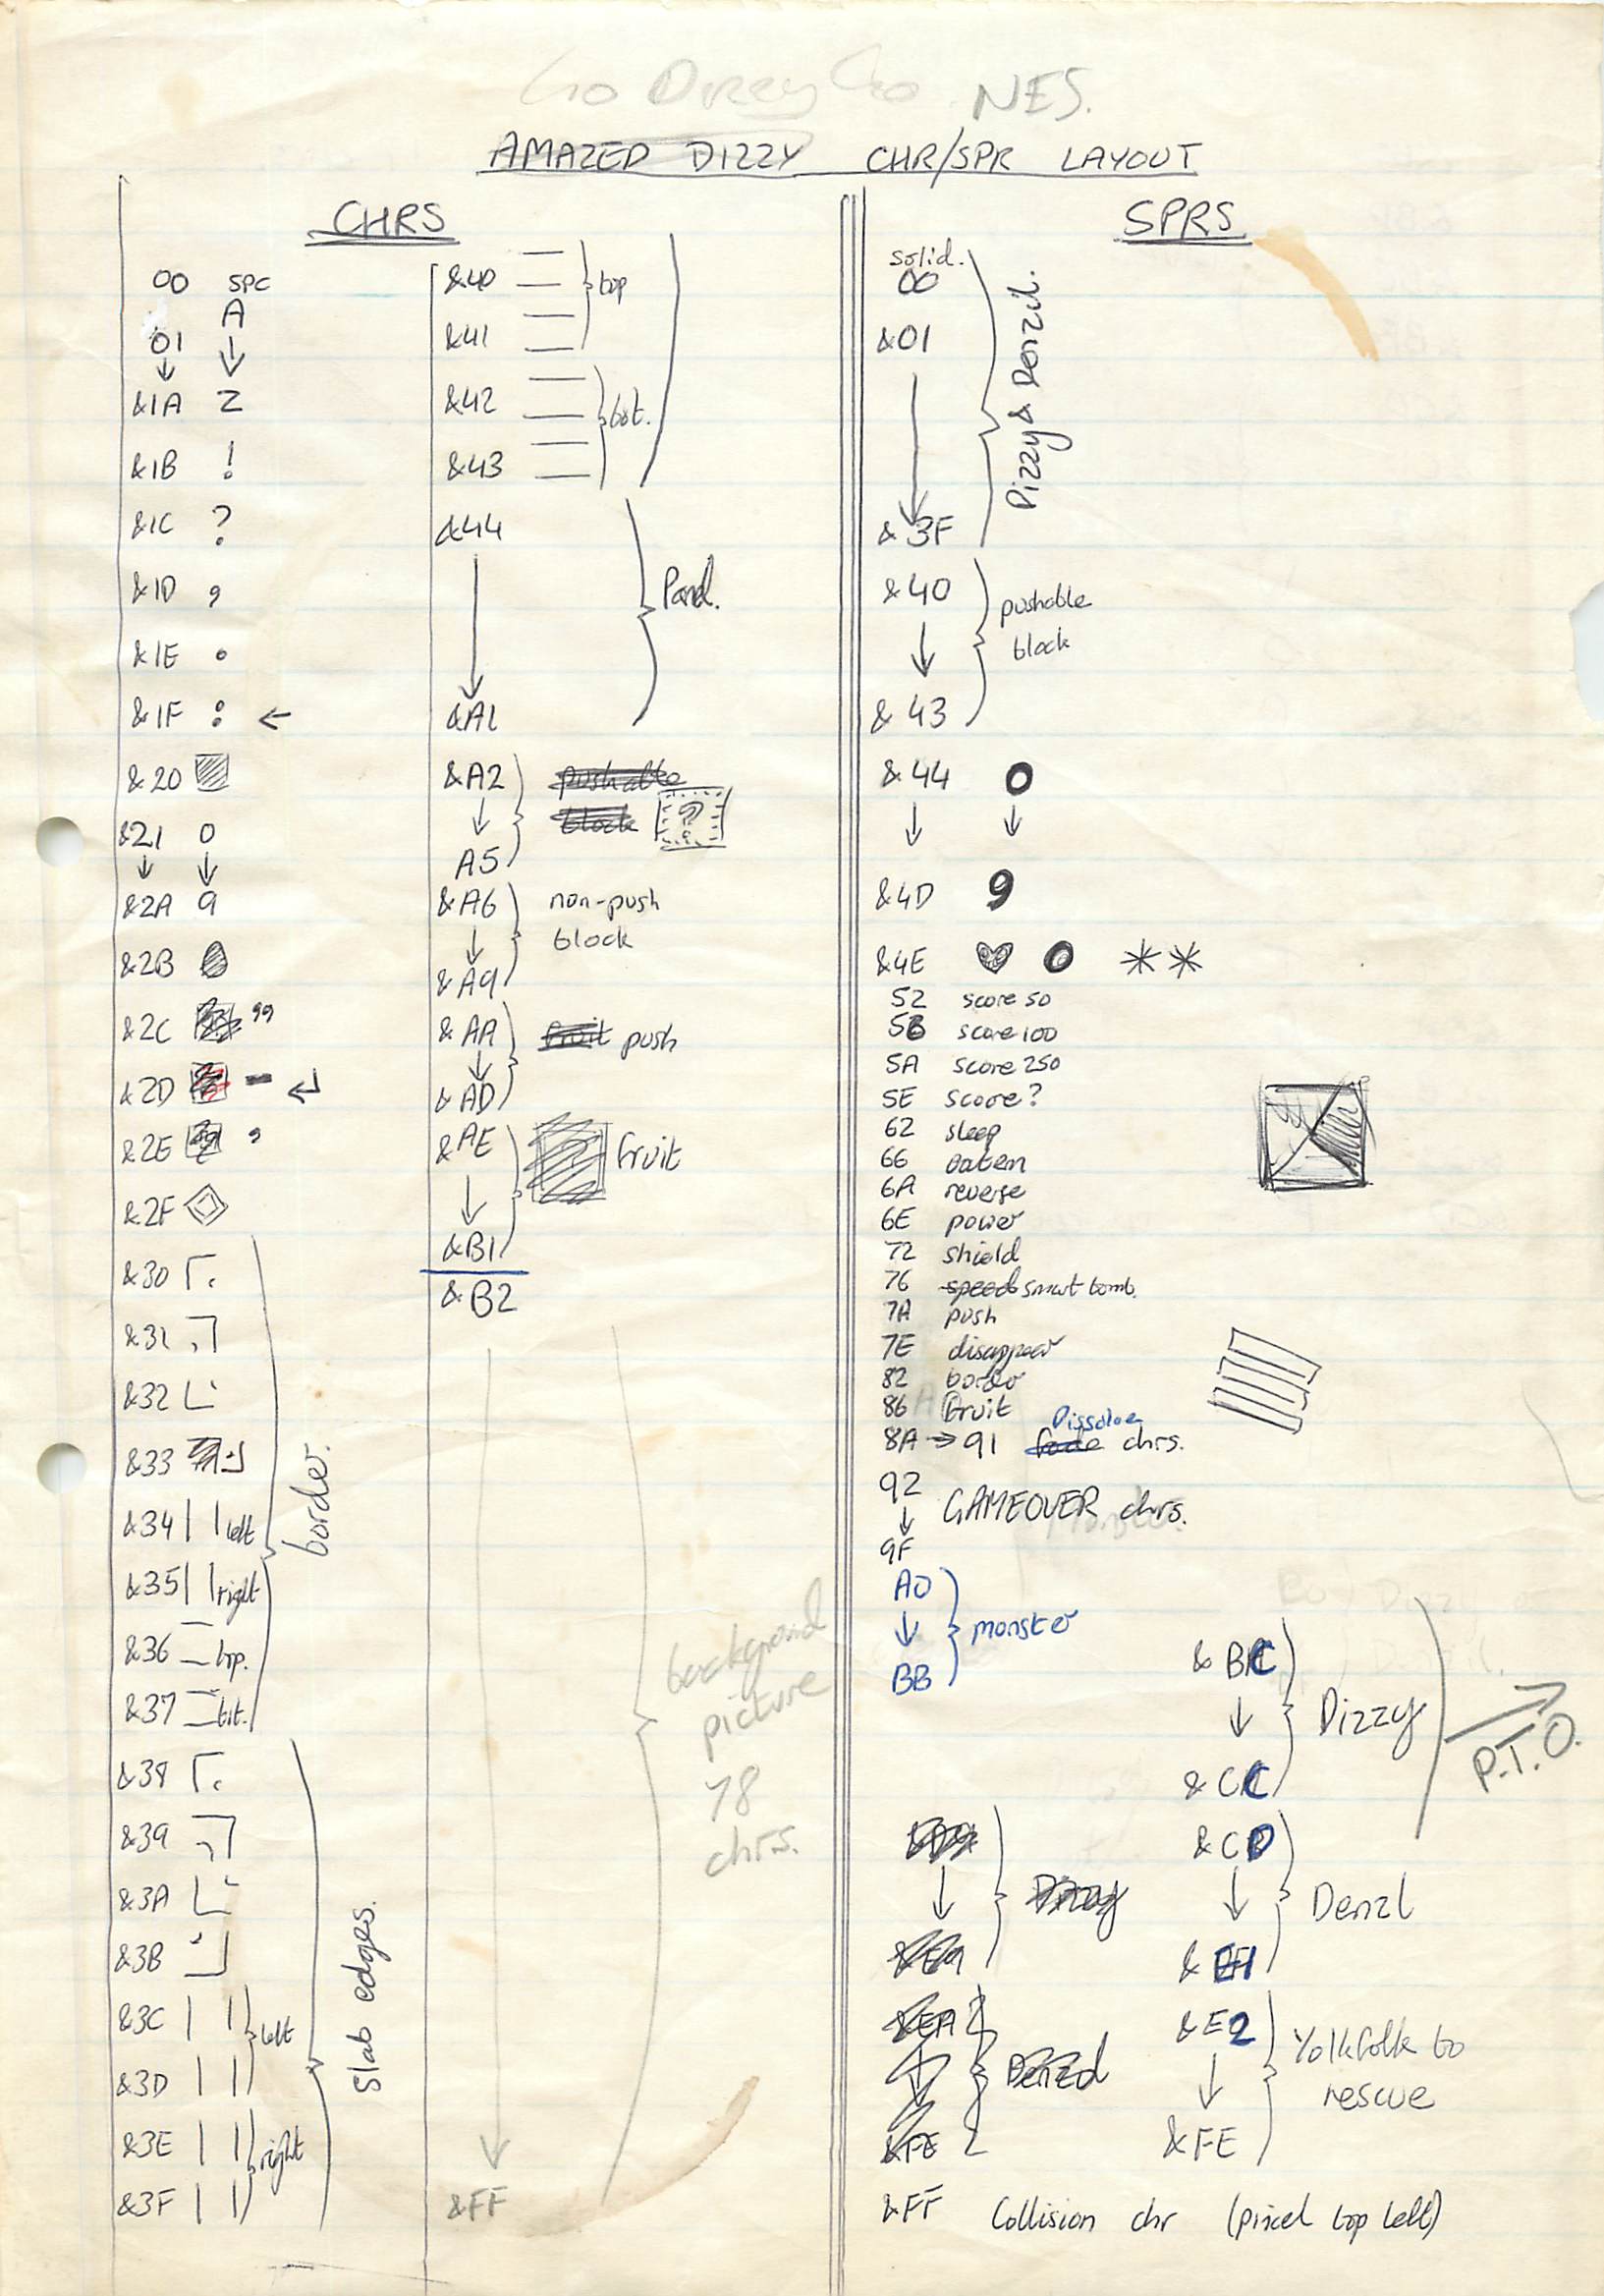 Go Dizzy Go NES.
AMAZED DIZZY CHR/SPR LAYOUT
CHRS
00 SPC
01 A
↓ ↓
&1A Z
&1B !
&1C ?
&1D ,
&1E .
&1F : ←
&20
&21 0
↓ ↓
&2A 9
&2B
&2C "
&2D - ↵
&2E '
&2F
&30
&31
&32
&33
&34 left
&35 right
&36 top.
&37 bot.
border.
&38
&39
&3A
&3B
&3C
&3D left
&3E
&3F right
slab edges.
&40
&41 top
&42
&43 bot.
&44
↓
&A1
Panel.
&A2 pushable
↓ block ?
A5
&A6 non-push
↓ block
&A9
&AA fruit push
↓
&AD
&AE fruit
↓
&B1
&B2
↓
&FF
background
picture
78
chrs.
SPRS
solid.
00
&01
↓
&3F
Dizzy & Denzil.
&40 pushable
↓ block
&43
&44 0
↓ ↓
&4D 9
&4E ♥ 0 * *
52 score 50
56 score 100
5A score 250
5E score?
62 sleep
66 eaten
6A reverse
6E power
72 shield
76 speed smart bomb.
7A push
7E disappear
82 border
86 fruit
8A → 91 fade Dissolve chrs.
92
↓ GAMEOVER chrs.
9F
A0
↓ monster
BB
&BC
↓ Dizzy
&CC
P.T.O.
&CD
↓ Denzl
&E1
Dizzy
&E9
&EA
↓ Denzil
&FE
&E2
↓ Yolkfolk to
rescue
&FE
&FF Collision chr (pixel top left)